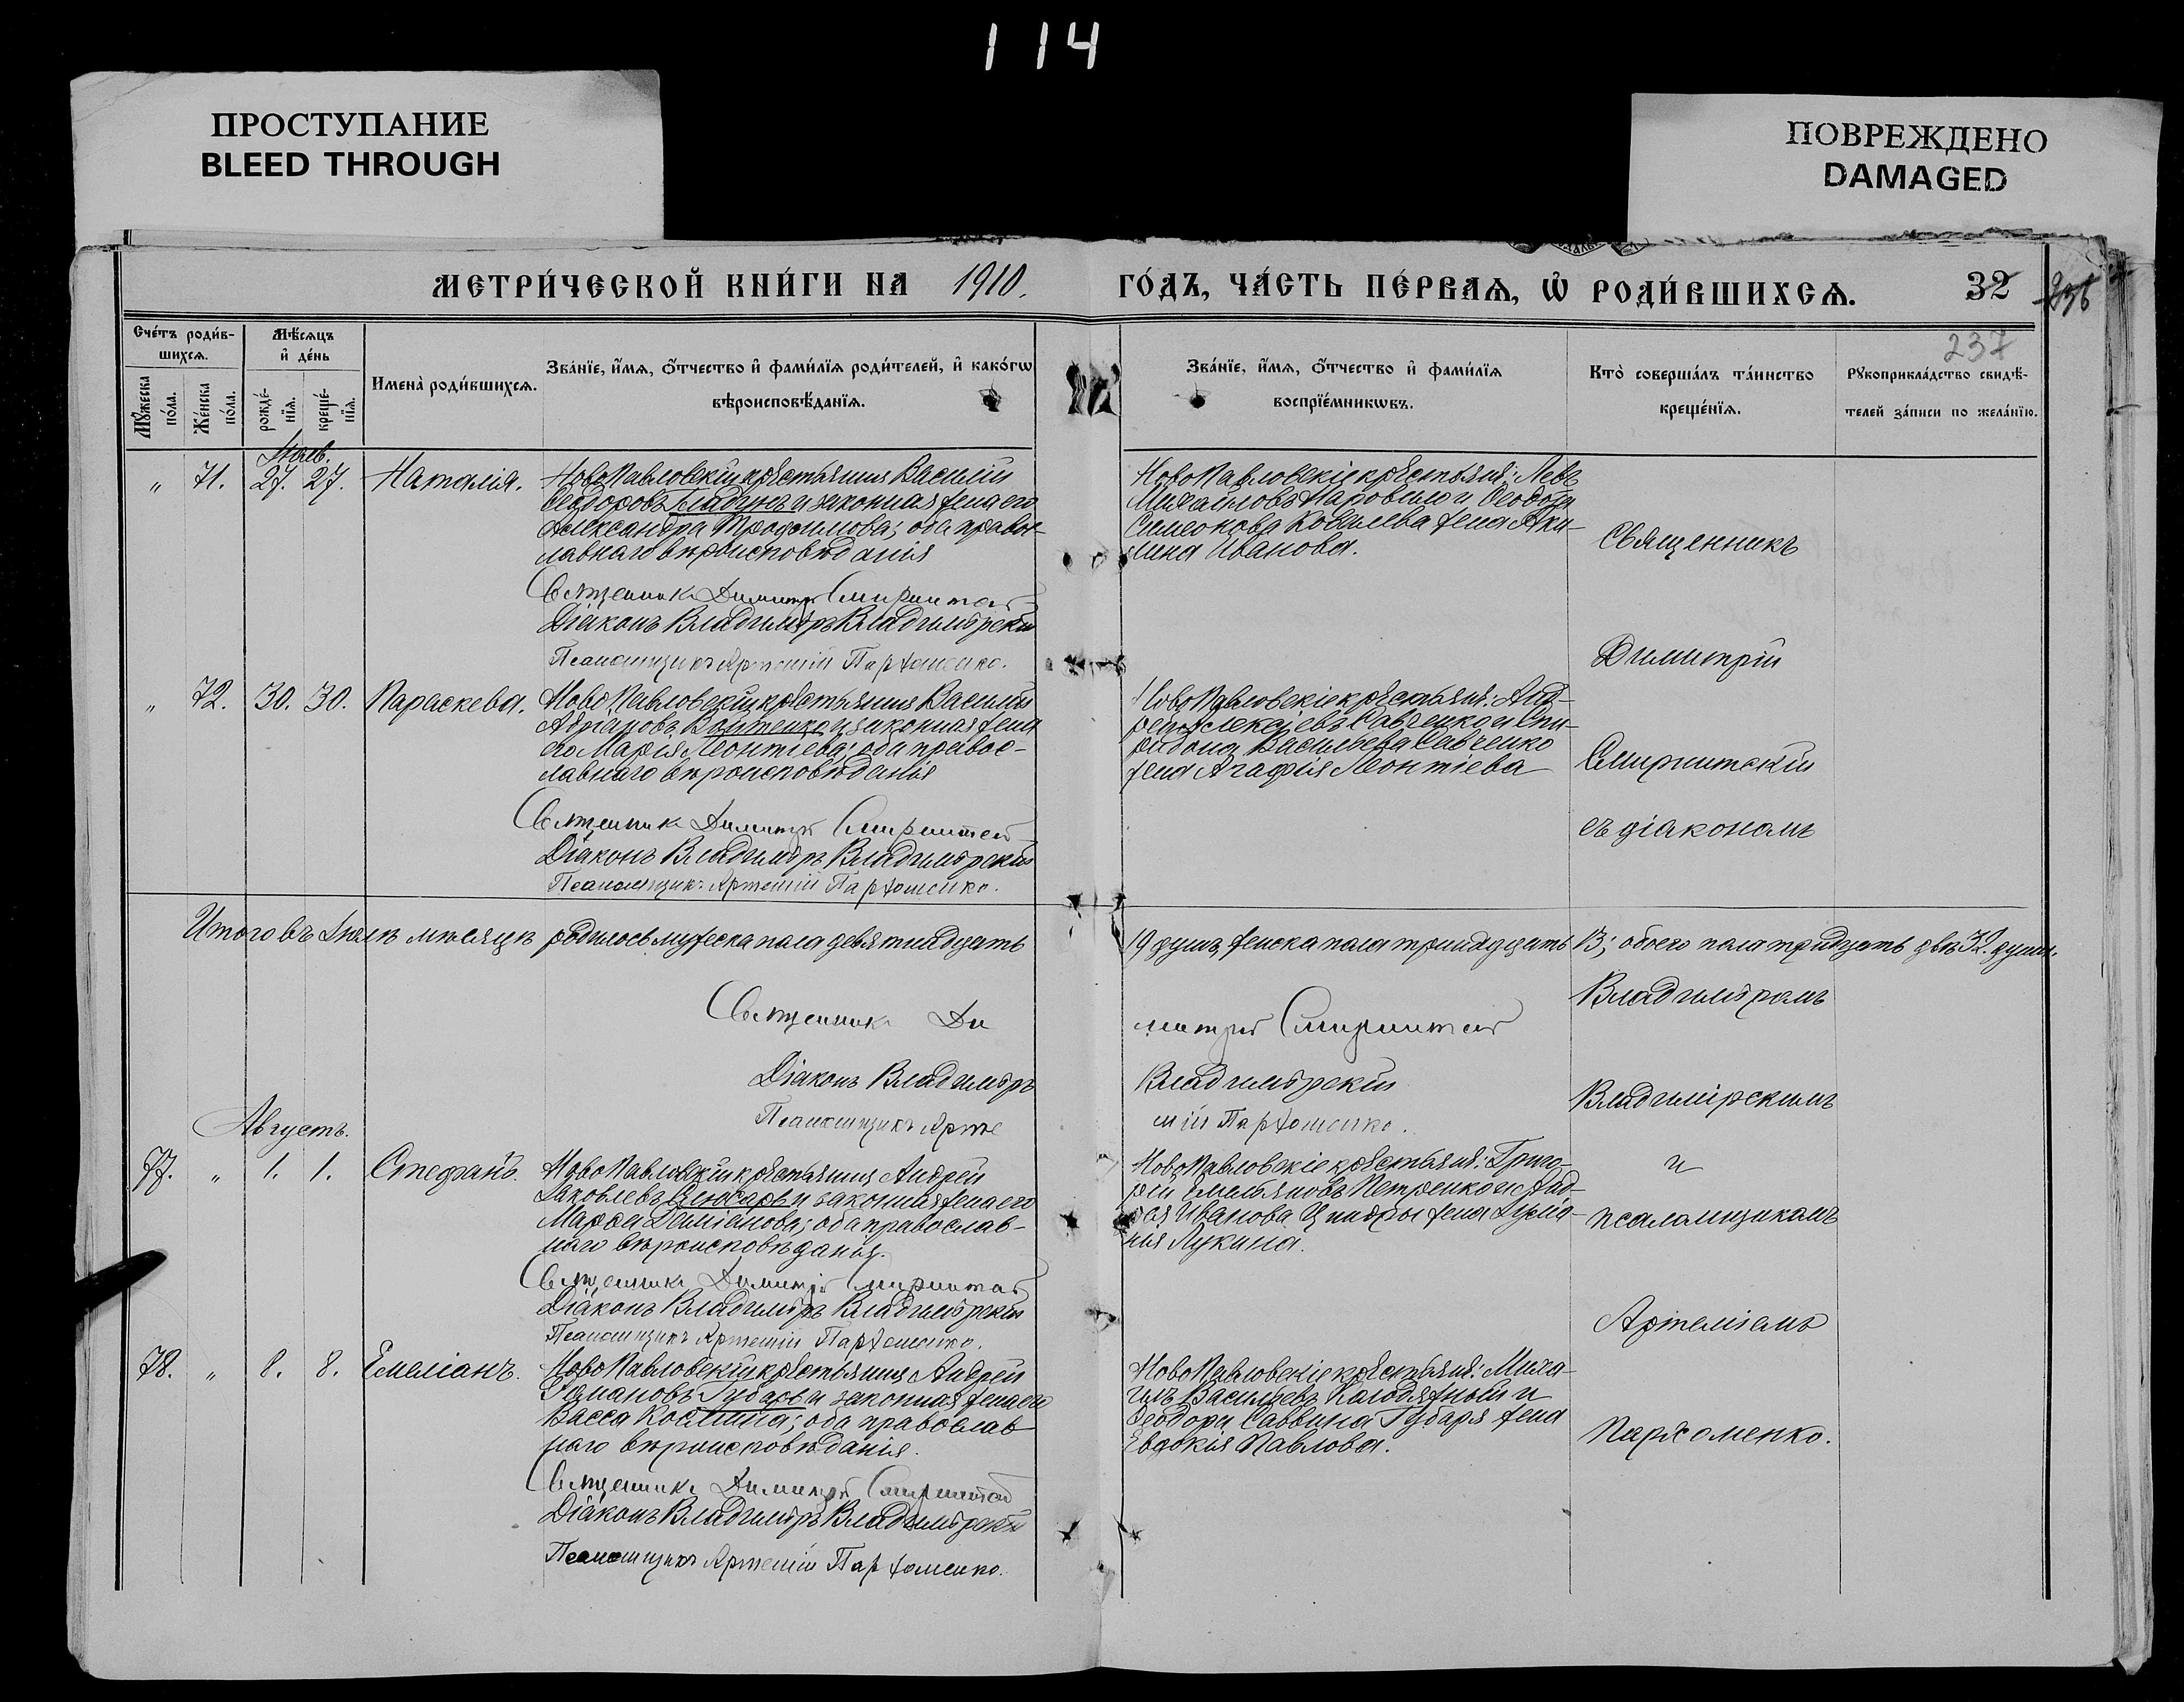 114
ПРОСТУПАНИЕ
BLEED THROUGH
ПОВРЕЖДЕНО
DAMAGED
МЕТРИ́ЧЕСКОЙ КНИ́ГИ НА 1910. ГО́ДЪ, ЧА́СТЬ ПЕ́РВАѦ, Ѡ҆ РОДИ́ВШИХСѦ. 32
236
237
Сче́тъ роди́в-
шихсѧ.
Мꙋ́жеска по́ла.
Же́нска по́ла.
Мѣ́сѧцъ
и҆ де́нь
рожде́-
нїѧ.
креще́-
нїѧ.
Имена̀ роди́вшихсѧ.
Зва́нїе, и҆́мѧ, ѻ҆́тчество и҆ фами́лїѧ роди́телей, и҆ како́гѡ
вѣроисповѣ́данїѧ.
Зва́нїе, и҆́мѧ, ѻ҆́тчество и҆ фами́лїѧ
воспрїе́мникѡвъ.
Кто̀ соверша́лъ та́инство
креще́нїѧ.
Рꙋкоприкла́дство свидѣ́-
телей за́писи по жела́нїю.
" 71. 27. 27. Наталія. НовоПавловскій крестьянинъ Василій
Ѳеодоровъ и законная жена его
Александра Трофимова; оба правос-
лавнаго вѣроисповѣданія
Священникъ Димитрій Смирнитскій
Діаконъ Владиміръ Владимірскій
Псаломщикъ Артемій Пархоменко.
НовоПавловскіе крестьяне: Левъ
Михайловъ и Ѳеодора
Симеонова Ковалева жена Аки-
лина Иванова.
Священникъ
Димитрій
" 72. 30. 30. Параскева. НовоПавловскій крестьянинъ Василій
Войтенко и законная жена
его Марія Леонтіева; оба правос-
лавнаго вѣроисповѣданія
Священникъ Димитрій Смирнитскій
Діаконъ Владиміръ Владимірскій
Псаломщикъ Артемій Пархоменко.
НовоПавловскіе крестьяне: Анд-
рей Алексіевъ Савченко и Спи-
ридона Васильева Савченко
жена Агафія Леонтіева
Смирнитскій
съ діакономъ
Итого въ Іюлѣ мѣсяцѣ родилось мужеска пола девятнадцать 19 душъ, женска пола тринадцать 13; обоего пола тридцать двѣ 32. души.
Священникъ Димитрій Смирнитскій
Діаконъ Владиміръ Владимірскій
Псаломщикъ Артемій Пархоменко.
Владиміромъ
Владимірскимъ
Августъ.
77. " 1. 1. Стефанъ. НовоПавловскій крестьянинъ Андрей
Іаковлевъ Слюсарь и законная жена его
Марѳа Даміанова; оба православ-
наго вѣроисповѣданія.
Священникъ Димитрій Смирнитскій
Діаконъ Владиміръ Владимірскій
Псаломщикъ Артемій Пархоменко.
НовоПавловскіе крестьяне: Григо-
рій Емельяновъ Петренко и
Иванова жена
Лукина.
и
псаломщикамъ
Артеміемъ
78. " 8. 8. Емеліанъ. НовоПавловскій крестьянинъ Андрей
Романовъ Губарь и законная жена его
Васса Космина; оба православ
наго вѣроисповѣданія.
Священникъ Димитрій Смирнитскій
Діаконъ Владиміръ Владимірскій
Псаломщикъ Артемій Пархоменко.
НовоПавловскіе крестьяне: Миха-
илъ Васильевъ Колодяжный и
Ѳеодора Саввина Губаря жена
Евдокія Павлова.
Пархоменко.